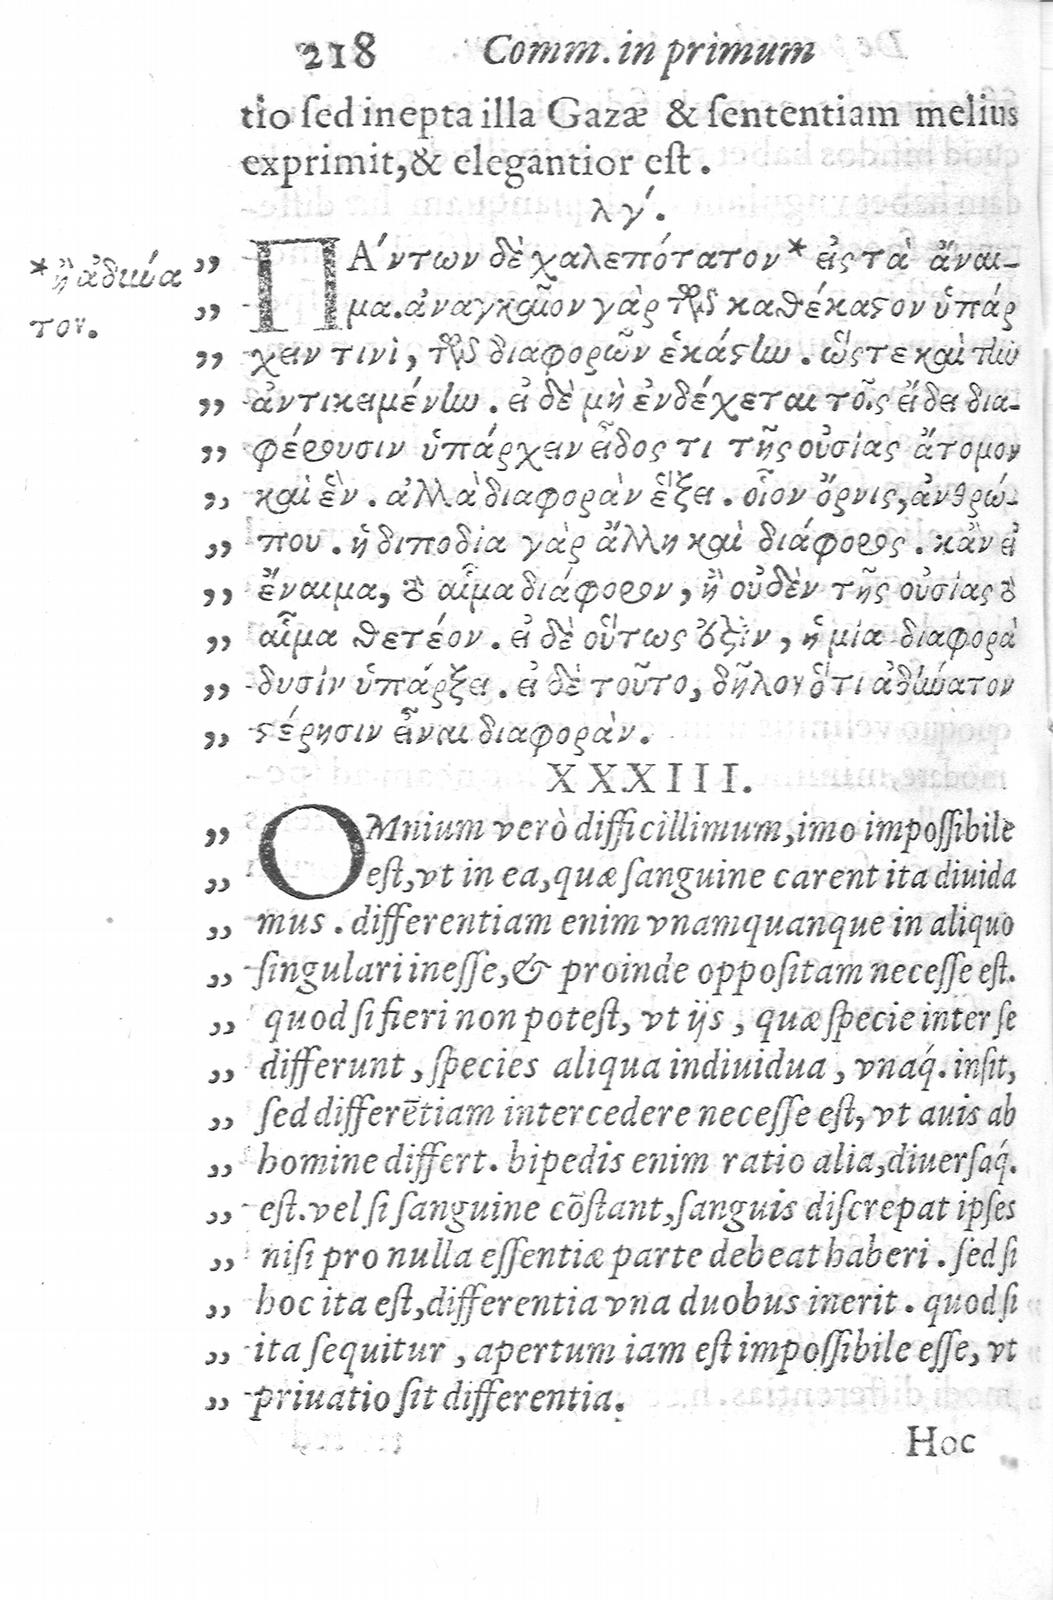 218 Comm. in primum
tio sed inepta illa Gazæ & sententiam melius
exprimit, & elegantior est.
λγʹ.
ΠΆντων δὲ χαλεπότατον * εἰς τὰ ἄναι-
* ἢ ἀδύνα
τον.
μα. ἀναγκαῖον γὰρ τῶν καθέκαστον ὑπάρ
χειν τινὶ, τῶν διαφορῶν ἑκάστην. ὥστε καὶ τὴν
ἀντικειμένην. εἰ δὲ μὴ ἐνδέχεται τοῖς εἴδει δια-
φέρουσιν ὑπάρχειν εἶδος τι τῆς οὐσίας ἄτομον
καὶ ἓν. ἀλλὰ διαφορὰν ἕξει. οἷον ὄρνις, ἀνθρώ-
που. ἡ διποδία γὰρ ἄλλη καὶ διάφορος. κἂν εἰ
ἔναιμα, τὸ αἷμα διάφορον, ἢ οὐδὲν τῆς οὐσίας τὸ
αἷμα θετέον. εἰ δὲ οὕτως ἐστὶν, ἡ μία διαφορὰ
δυσὶν ὑπάρξει. εἰ δὲ τοῦτο, δῆλον ὅτι ἀδύνατον
στέρησιν εἶναι διαφορὰν.
XXXIII.
OMnium verò difficillimum, imo impossibile
est, vt in ea, quæ sanguine carent ita diuida
mus. differentiam enim vnamquanque in aliquo
singulari inesse, & proinde oppositam necesse est.
quod si fieri non potest, vt ijs, quæ specie inter se
differunt, species aliqua indiuidua, vnaq́. insit,
sed differētiam intercedere necesse est, vt auis ab
homine differt. bipedis enim ratio alia, diuersaq́.
est. vel si sanguine cōstant, sanguis discrepat ipses
nisi pro nulla essentiæ parte debeat haberi. sed si
hoc ita est, differentia vna duobus inerit. quod si
ita sequitur, apertum iam est impossibile esse, vt
priuatio sit differentia.
Hoc